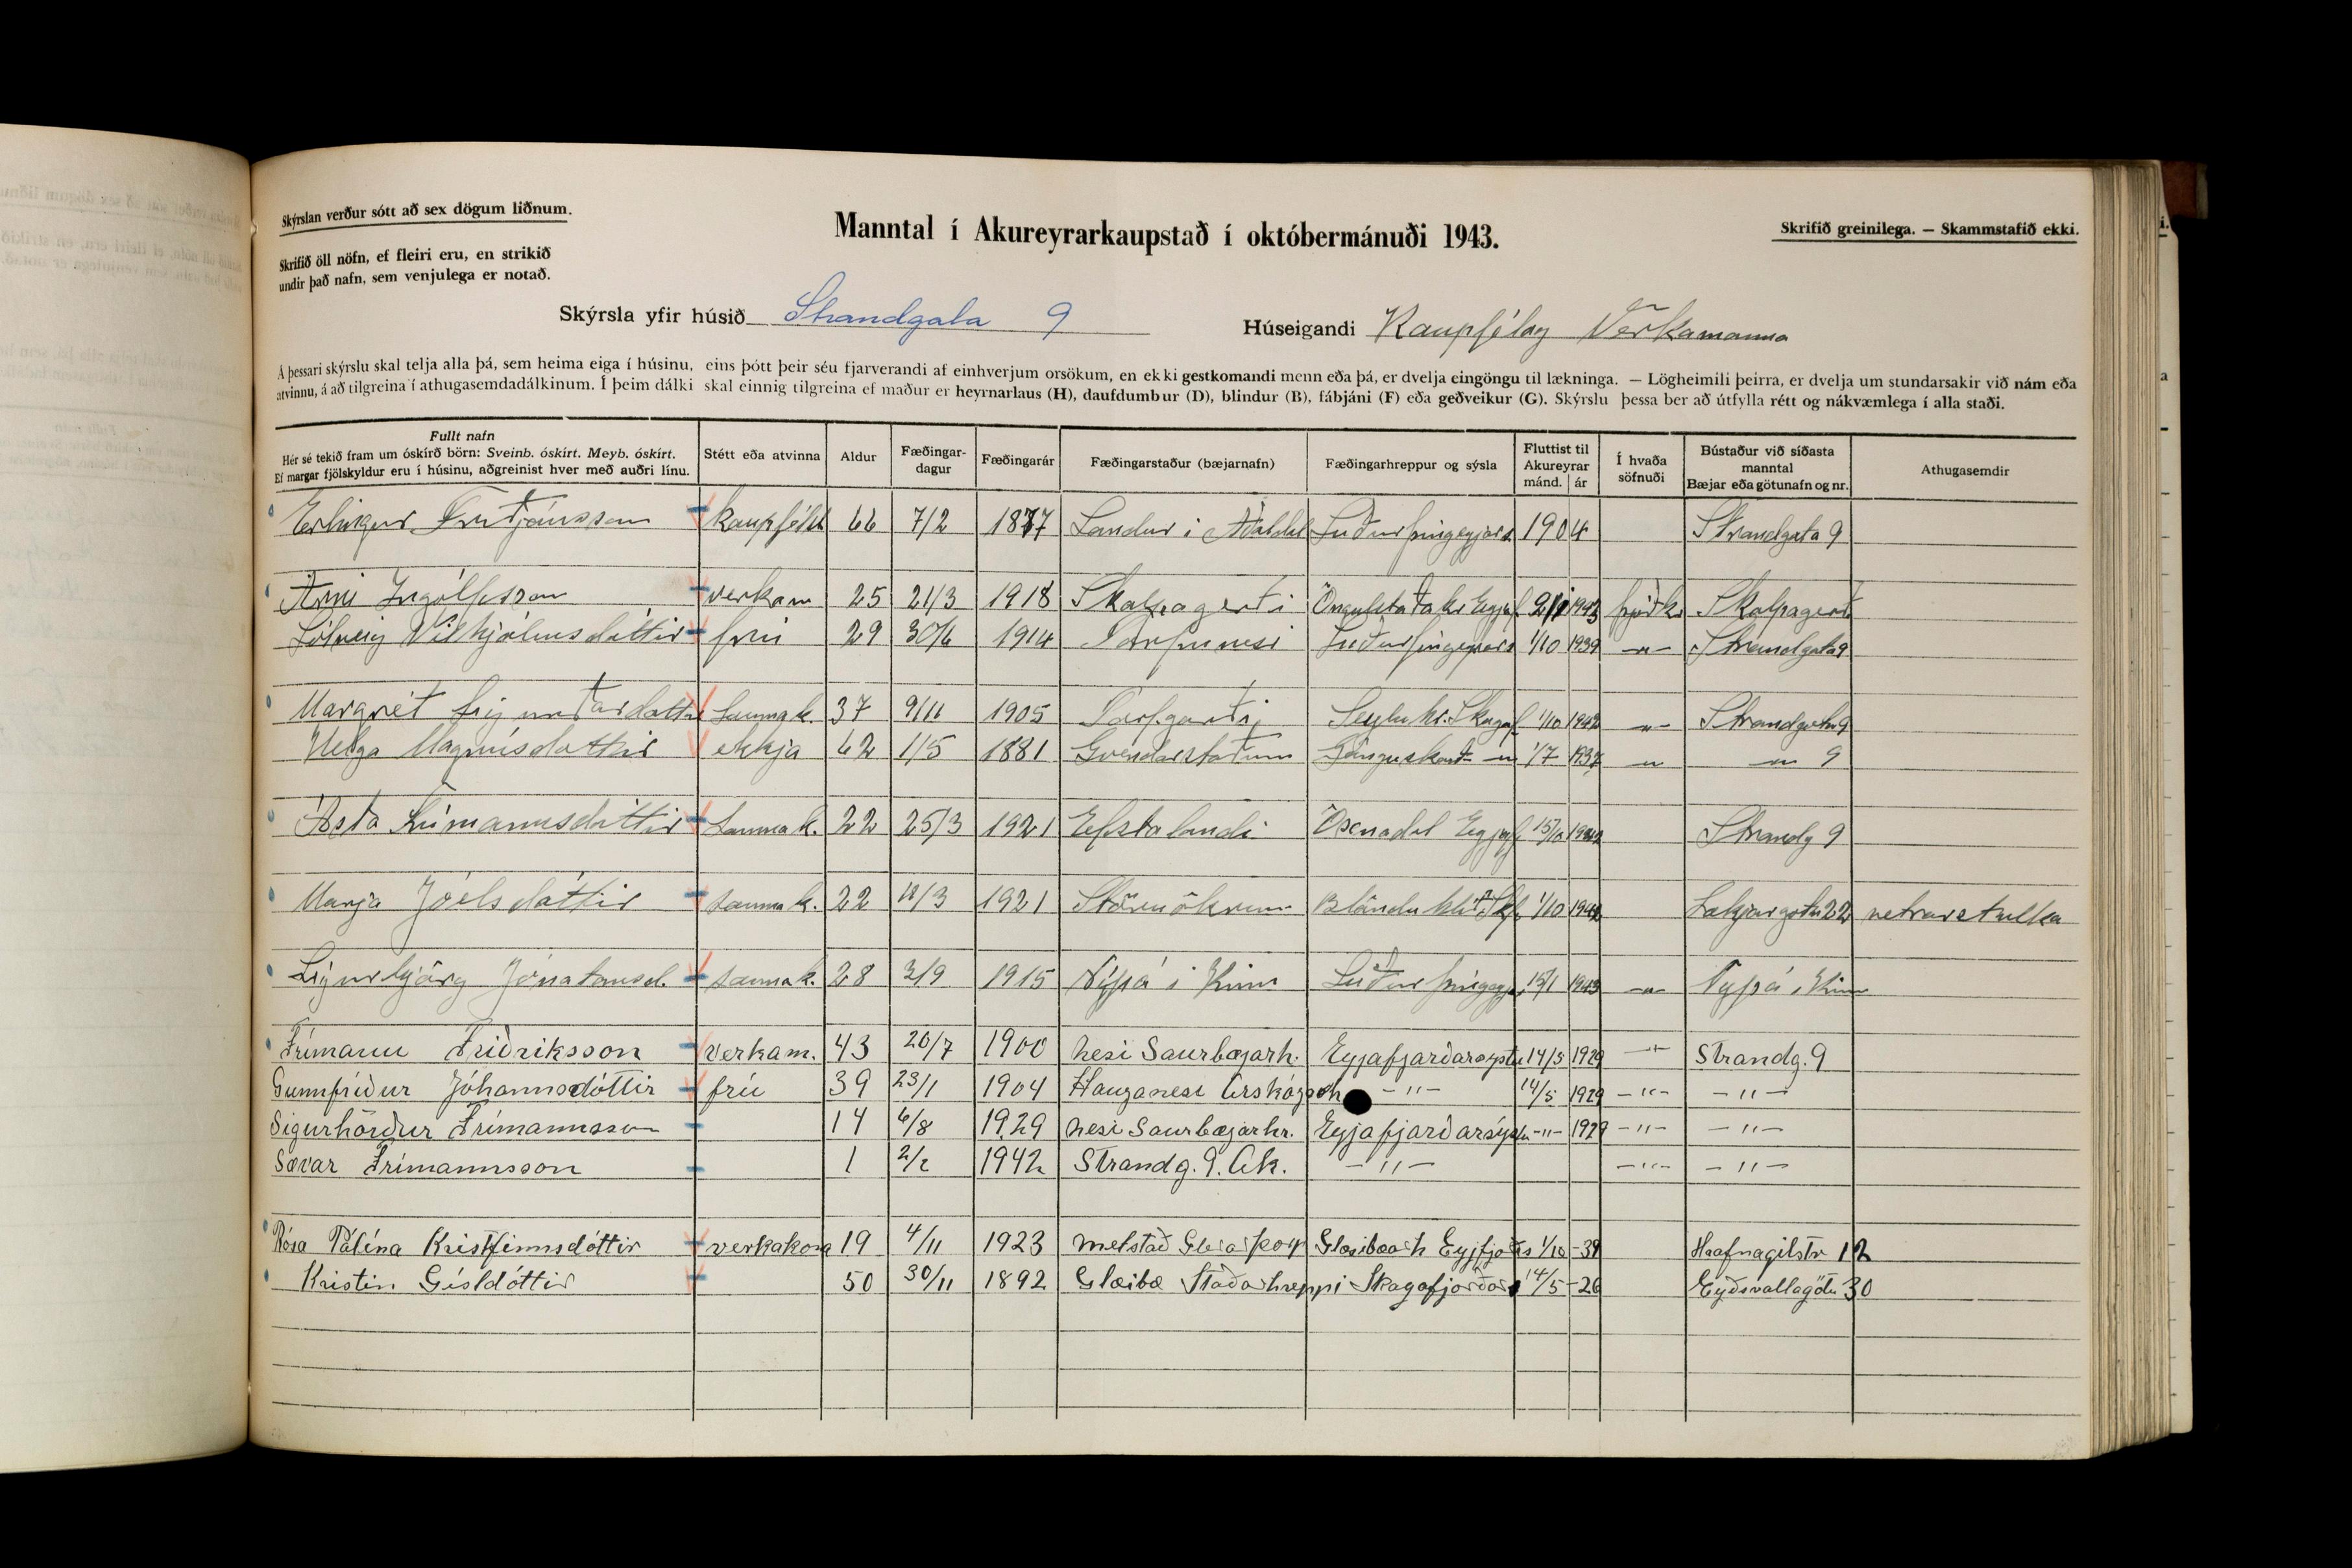 Skýrslan verður sótt að sex dögum liðnum.
Skrifið öll nöfn, ef fleiri eru, en strikið
undir það nafn, sem venjulega er notað.
Manntal í Akureyrarkaupstað í októbermánuði 1943.
Skrifið greinilega. — Skammstafið ekki.
Skýrsla yfir húsið Strandgata 9
Húseigandi Kaupfélag Verkamanna
Á þessari skýrslu skal telja alla þá, sem heima eiga í húsinu, eins þótt þeir séu fjarverandi af einhverjum orsökum, en ekki gestkomandi menn eða þá, er dvelja eingöngu til lækninga. — Lögheimili þeirra, er dvelja um stundarsakir við nám eða
atvinnu, á að tilgreina í athugasemdadálkinum. Í þeim dálki skal einnig tilgreina ef maður er heyrnarlaus (H), daufdumbur (D), blindur (B), fábjáni (F) eða geðveikur (G). Skýrslu þessa ber að útfylla rétt og nákvæmlega í alla staði.
Fullt nafn
Hér sé tekið fram um óskírð börn: Sveinb. óskírt. Meyb. óskírt.
Ef margar fjölskyldur eru í húsinu, aðgreinist hver með auðri línu.
Stétt eða atvinna
Aldur
Fæðingar-
dagur
Fæðingarár
Fæðingarstaður (bæjarnafn)
Fæðingarhreppur og sýsla
Fluttist til
Akureyrar
mánd. ár
Í hvaða
söfnuði
Bústaður við síðasta
manntal
Bæjar eða götunafn og nr.
Athugasemdir
Erlingur Friðjónsson kaupfélst 66 7/2 1877 Sandur i Aðaldal Suðurþingeyjars 1904 Strandgata 9
Árni Ingólfsson verkam 25 21/3 1918 Skálpagerði Öngulstaðahr Eyjaf 1943 þjóðk. Skálpagerð
Sólveig Vilhjálmsdóttir frú 29 30/6 1914 Torfunesi Suðurþingeyjars 1/10 1939 -„- Strandgata 9
Margrét Sigurðardóttir saumak. 37 9/11 1905 Seyluhr. Skagaf 1/10 1942 -„- Strandgötu 9
Helga Magnúsdóttir ekkja 62 1/5 1881 Gvendarstöðum Gönguskörð -„- 1/7 1937 -„- -„- 9
Ásta Frímannsdóttir saumak. 22 25/3 1921 Efstalandi Öxnadal Eyjaf 15/10 Strandg 9
María Jóelsdóttir saumak. 22 18/3 1921 Stóruökrum Blönduhlíð Skf 1/10 1942 Lækjargötu 22 vetrarstulka
Sigurbjörg Jónatansd. saumak. 28 3/9 1915 Nýpá í Kinn Suður þingeyj 15/1 1943 -„- Nýpá í Kinn
Frímann Friðriksson verkam. 43 20/7 1900 nesi Saurbæjarh. Eyjafjarðarsýslu 14/5 1929 -„- Strandg. 9
Gunnfríður Jóhannsdóttir frú 39 23/1 1904 Hauganesi Árskógsh -„- 14/5 1929 -„- -„-
Sigurhörður Frímannsson 14 6/8 1929 nesi Saurbæjarhr. Eyjafjarðarsýslu -„- 1929 -„- -„-
Sævar Frímannsson 1 2/2 1942 Strandg. 9. Ak. -„- -„- -„-
Rósa Pálína Kristfinnsdóttir verkakona 19 4/11 1923 melstað Glerárþorp Glæsibæarh Eyjfjarðs 1/10 -39 Hrafnagilstr 12
Kristin Gísldóttir 50 30/11 1892 Glæibæ Staðarhreppi Skagafjörðar 14/5 -26 Eyðsvallagötu 30